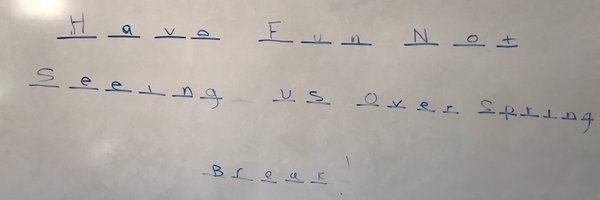 Have Fun Not
Seeing us Over Spring
Break!